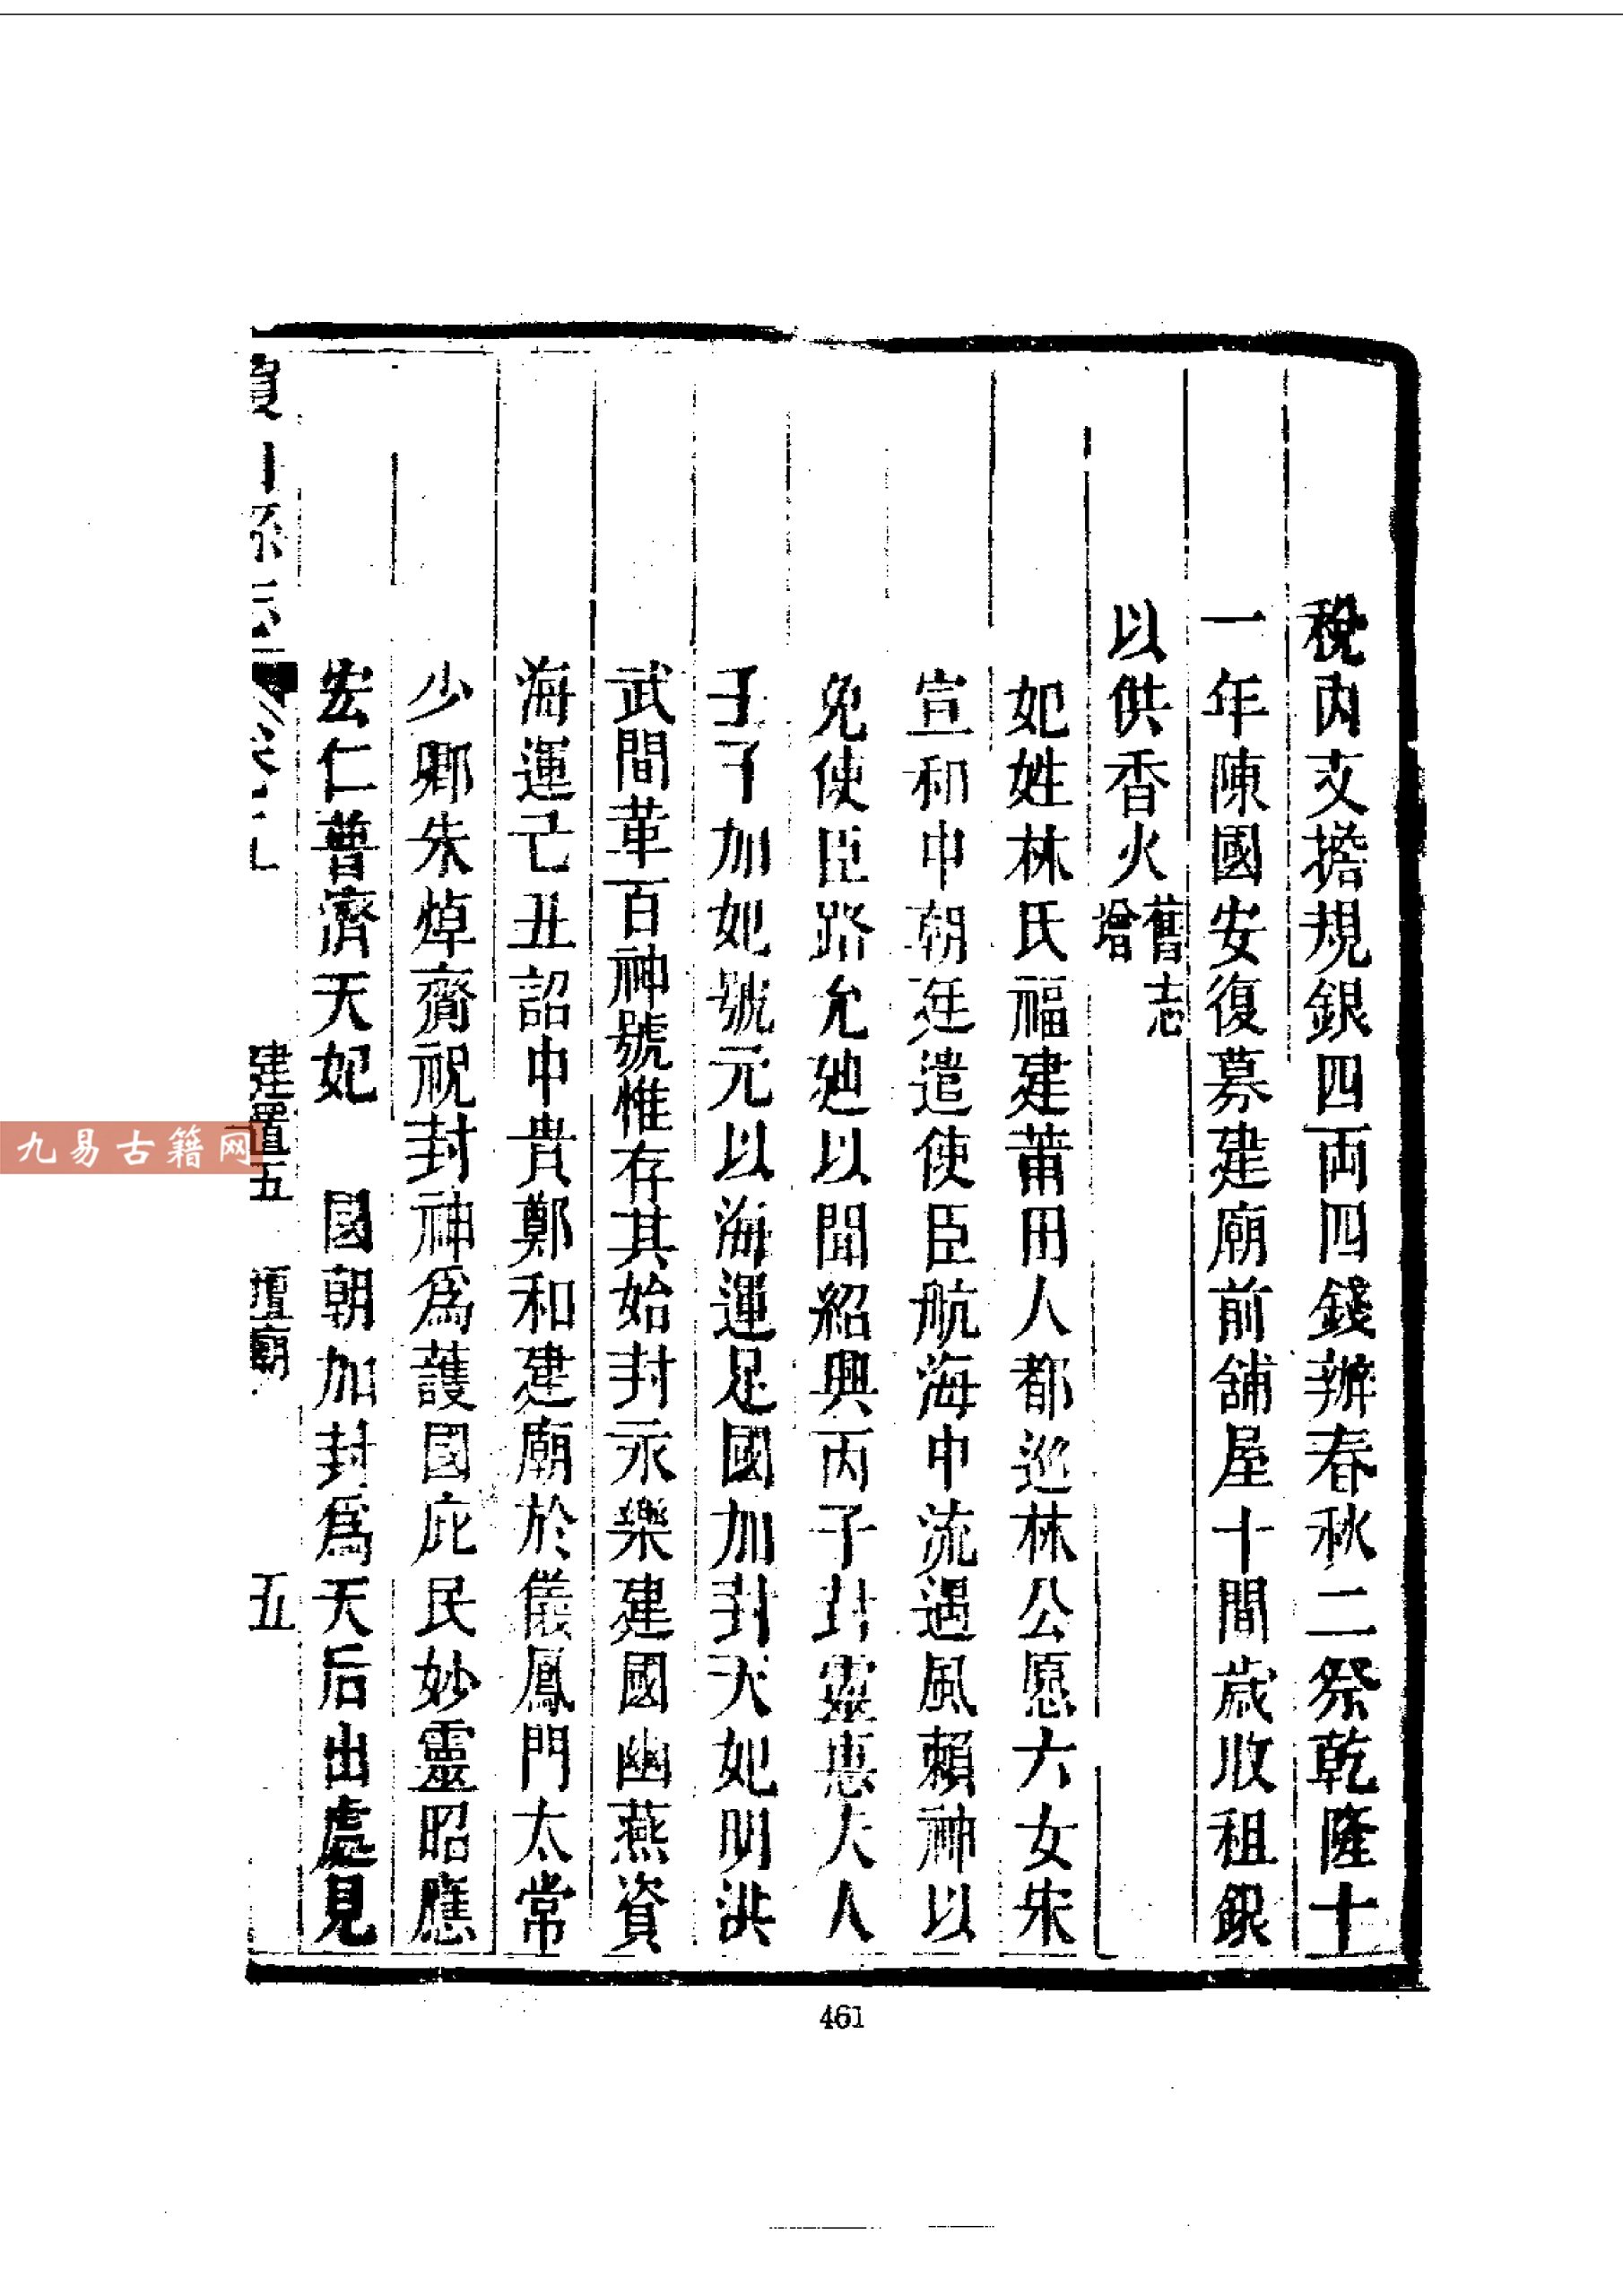 稅內支擔規銀四両四錢辦春秋二祭乾隆十
一年陳國安復募建廟前舖屋十間歲收租銀
以供香火舊志增
妃姓林氏福建莆田人都巡林公愿六女宋
宣和中朝廷遣使臣航海中流遇風賴神以
免使臣路允廸以聞紹興丙子封靈惠夫人
壬子加妃號元以海運足國加封天妃明洪
武間革百神號惟存其始封永樂建國幽燕資
海運己丑詔中貴鄭和建廟於儀鳳門太常
少卿朱焯齎祝封神爲護國庇民妙靈昭應
宏仁普濟天妃 國朝加封爲天后出處見
建置五 壇廟 五
九易古籍网
461